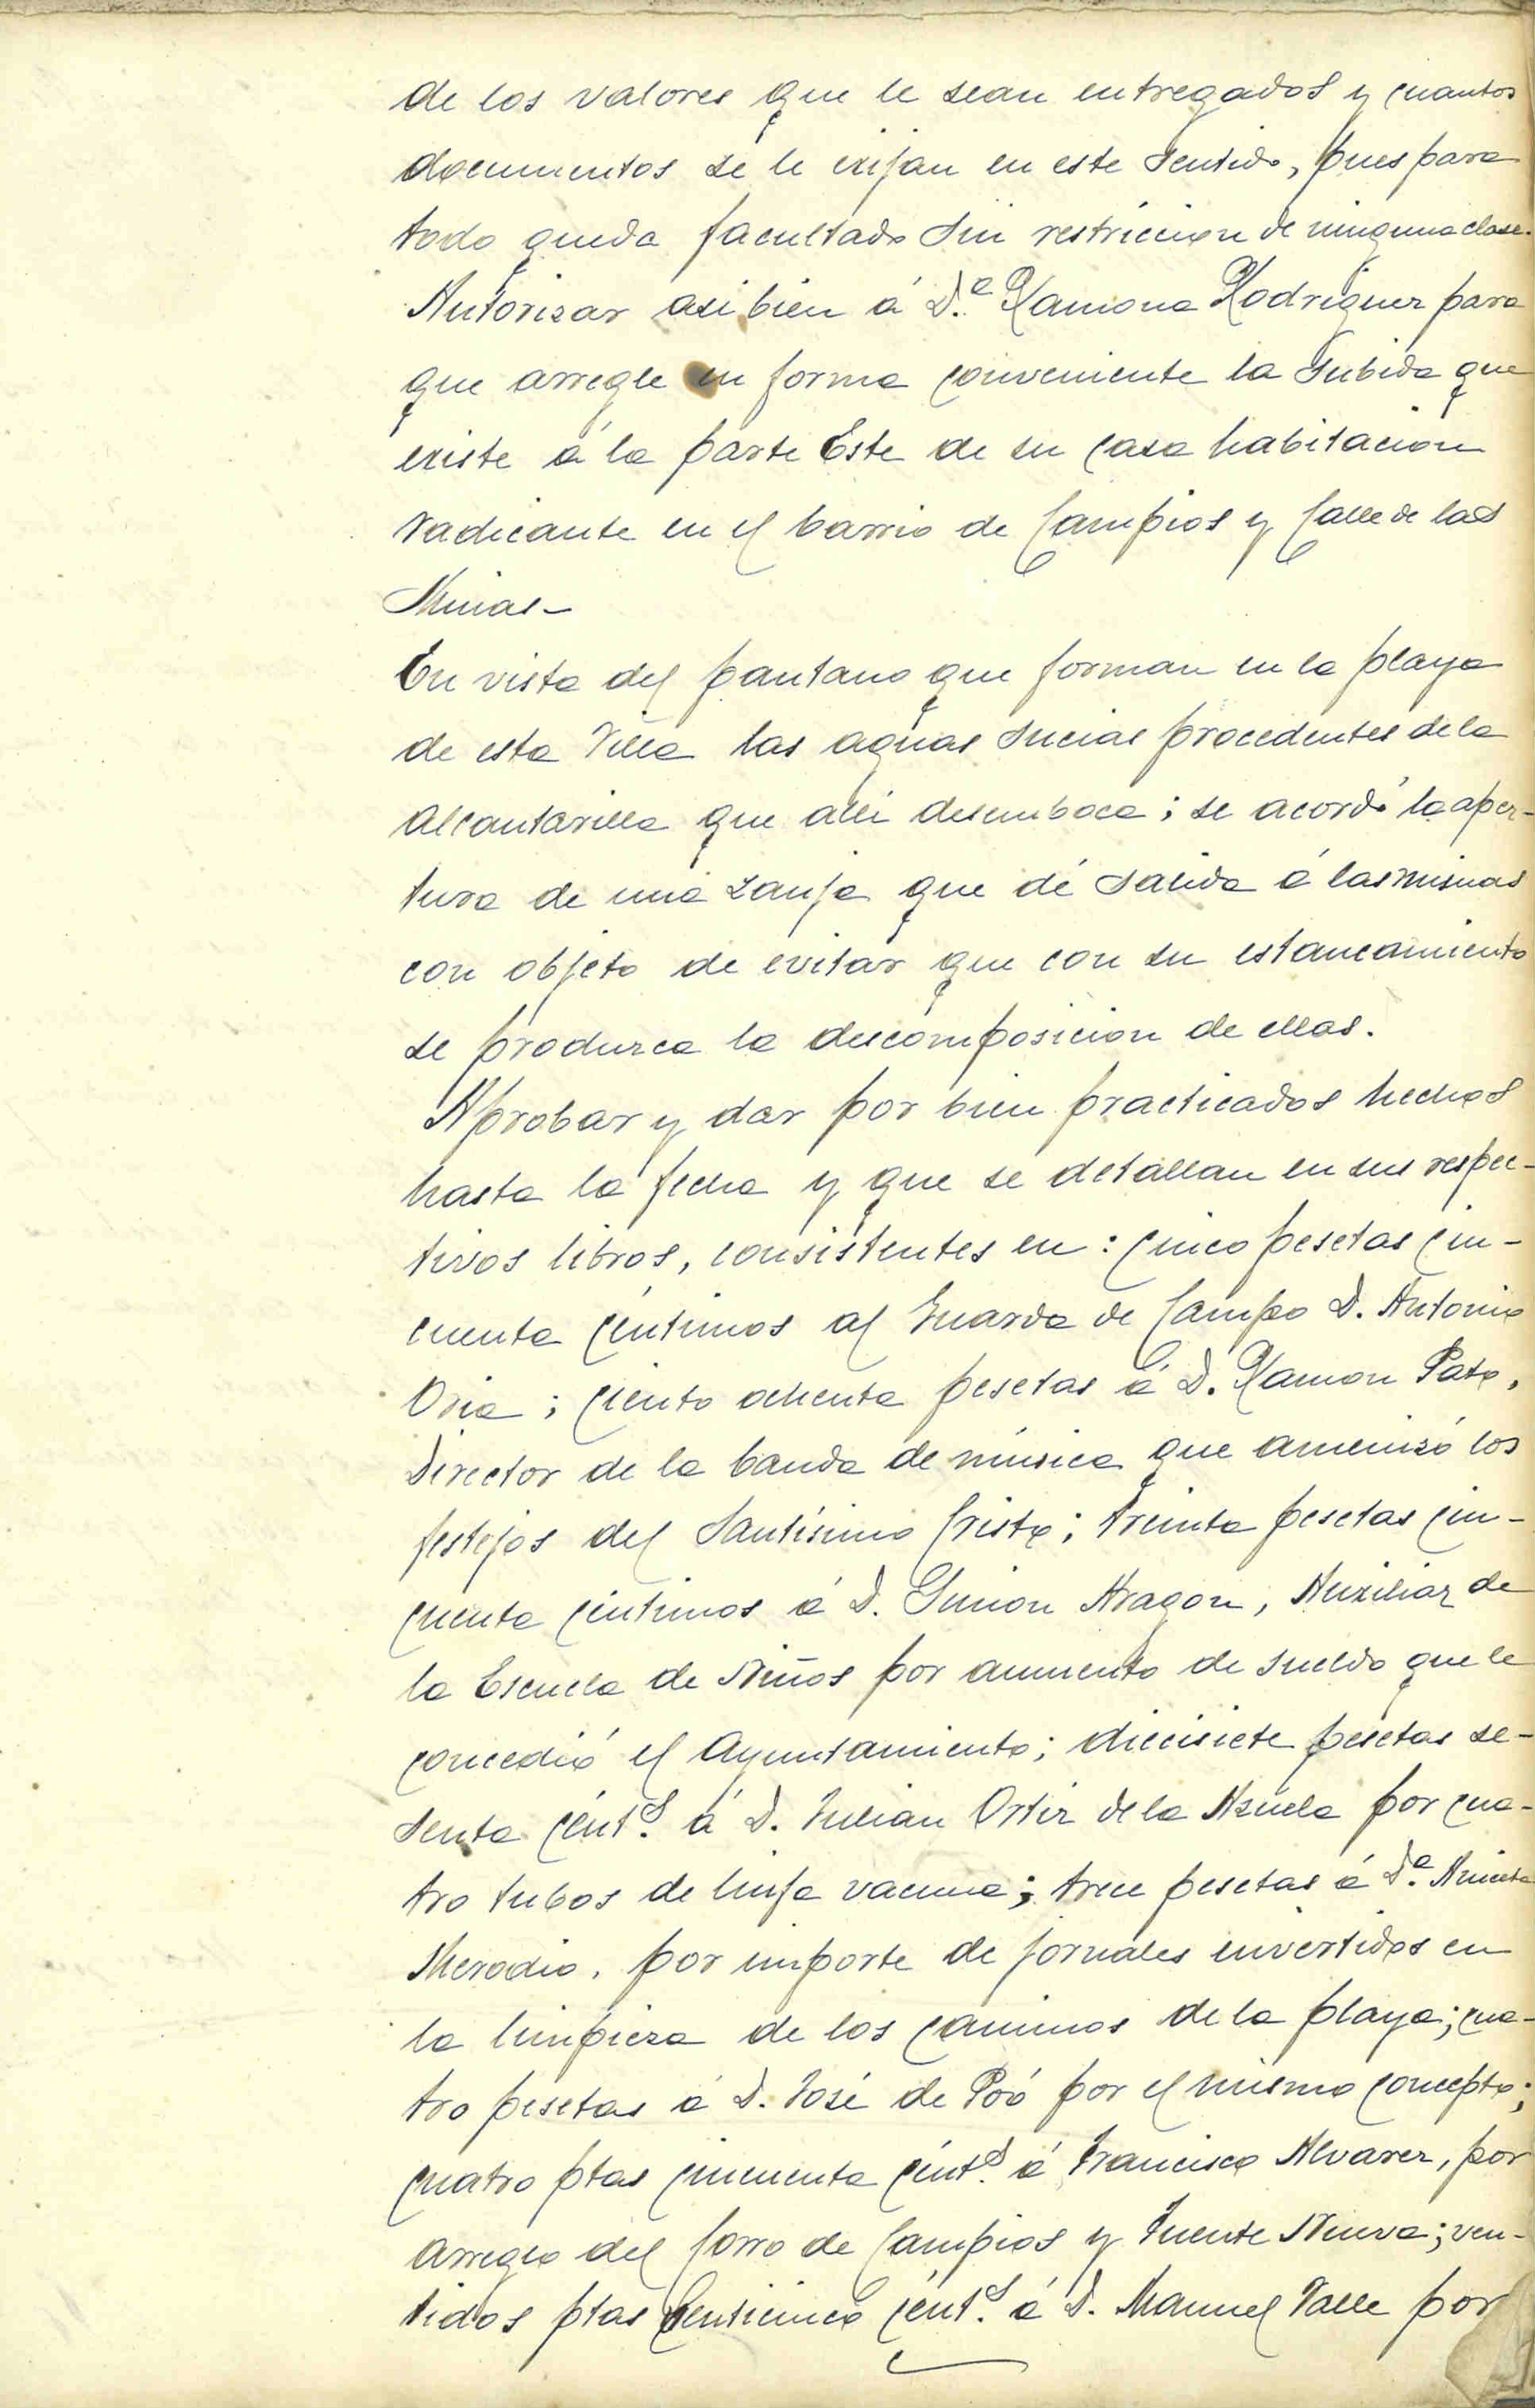 de los valores que le sean entregados y cuantos
documentos se le exijan en este sentido, pues para
todo queda facultado sin restriccion de ninguna clase.
Autorizar asi bien á D.ª Ramona Rodriguez para
que arregle en forma conveniente la subida que
existe á la parte Este de su casa habitacion
radicante en el barrio de Campios y Calle de las
Minas-
En vista del pantano que forman en la playa
de esta Villa las aguas sucias procedentes de la
alcantarilla que alli desemboca; se acordó la aper-
tura de una zanja que dé salida á las mismas
con objeto de evitar que con su estancamiento
se produzca la descomposicion de ellas.
Aprobar y dar por bien practicados hechos
hasta la fecha y que se detallan en sus respec-
tivos libros, consistentes en: cinco pesetas cin-
cuenta céntimos al Guarda de Campo D. Antonio
Oria; ciento ochenta pesetas á D. Ramon Pato,
Director de la banda de música que amenizó los
festejos del Santísimo Cristo; treinta pesetas cin-
cuenta céntimos á D. Simon Aragon, Auxiliar de
la Escuela de Niños por aumento de sueldo que le
concedió el Ayuntamiento; diecisiete pesetas se-
senta cént.s á D. Julian Ortiz de la Azuela por cua-
tro tubos de linfa vacuna; trece pesetas á D.ª
Merodio, por importe de jornales invertidos en
la limpieza de los caminos de la playa; cua-
tro pesetas á D. José de Poó por el mismo concepto;
cuatro ptas cincuenta cént.s á Francisco Alvarez, por
arreglo del Corro de Campios y Fuente Nueva; ven-
tidos ptas venticinco cént.s á D. Manuel Valle por